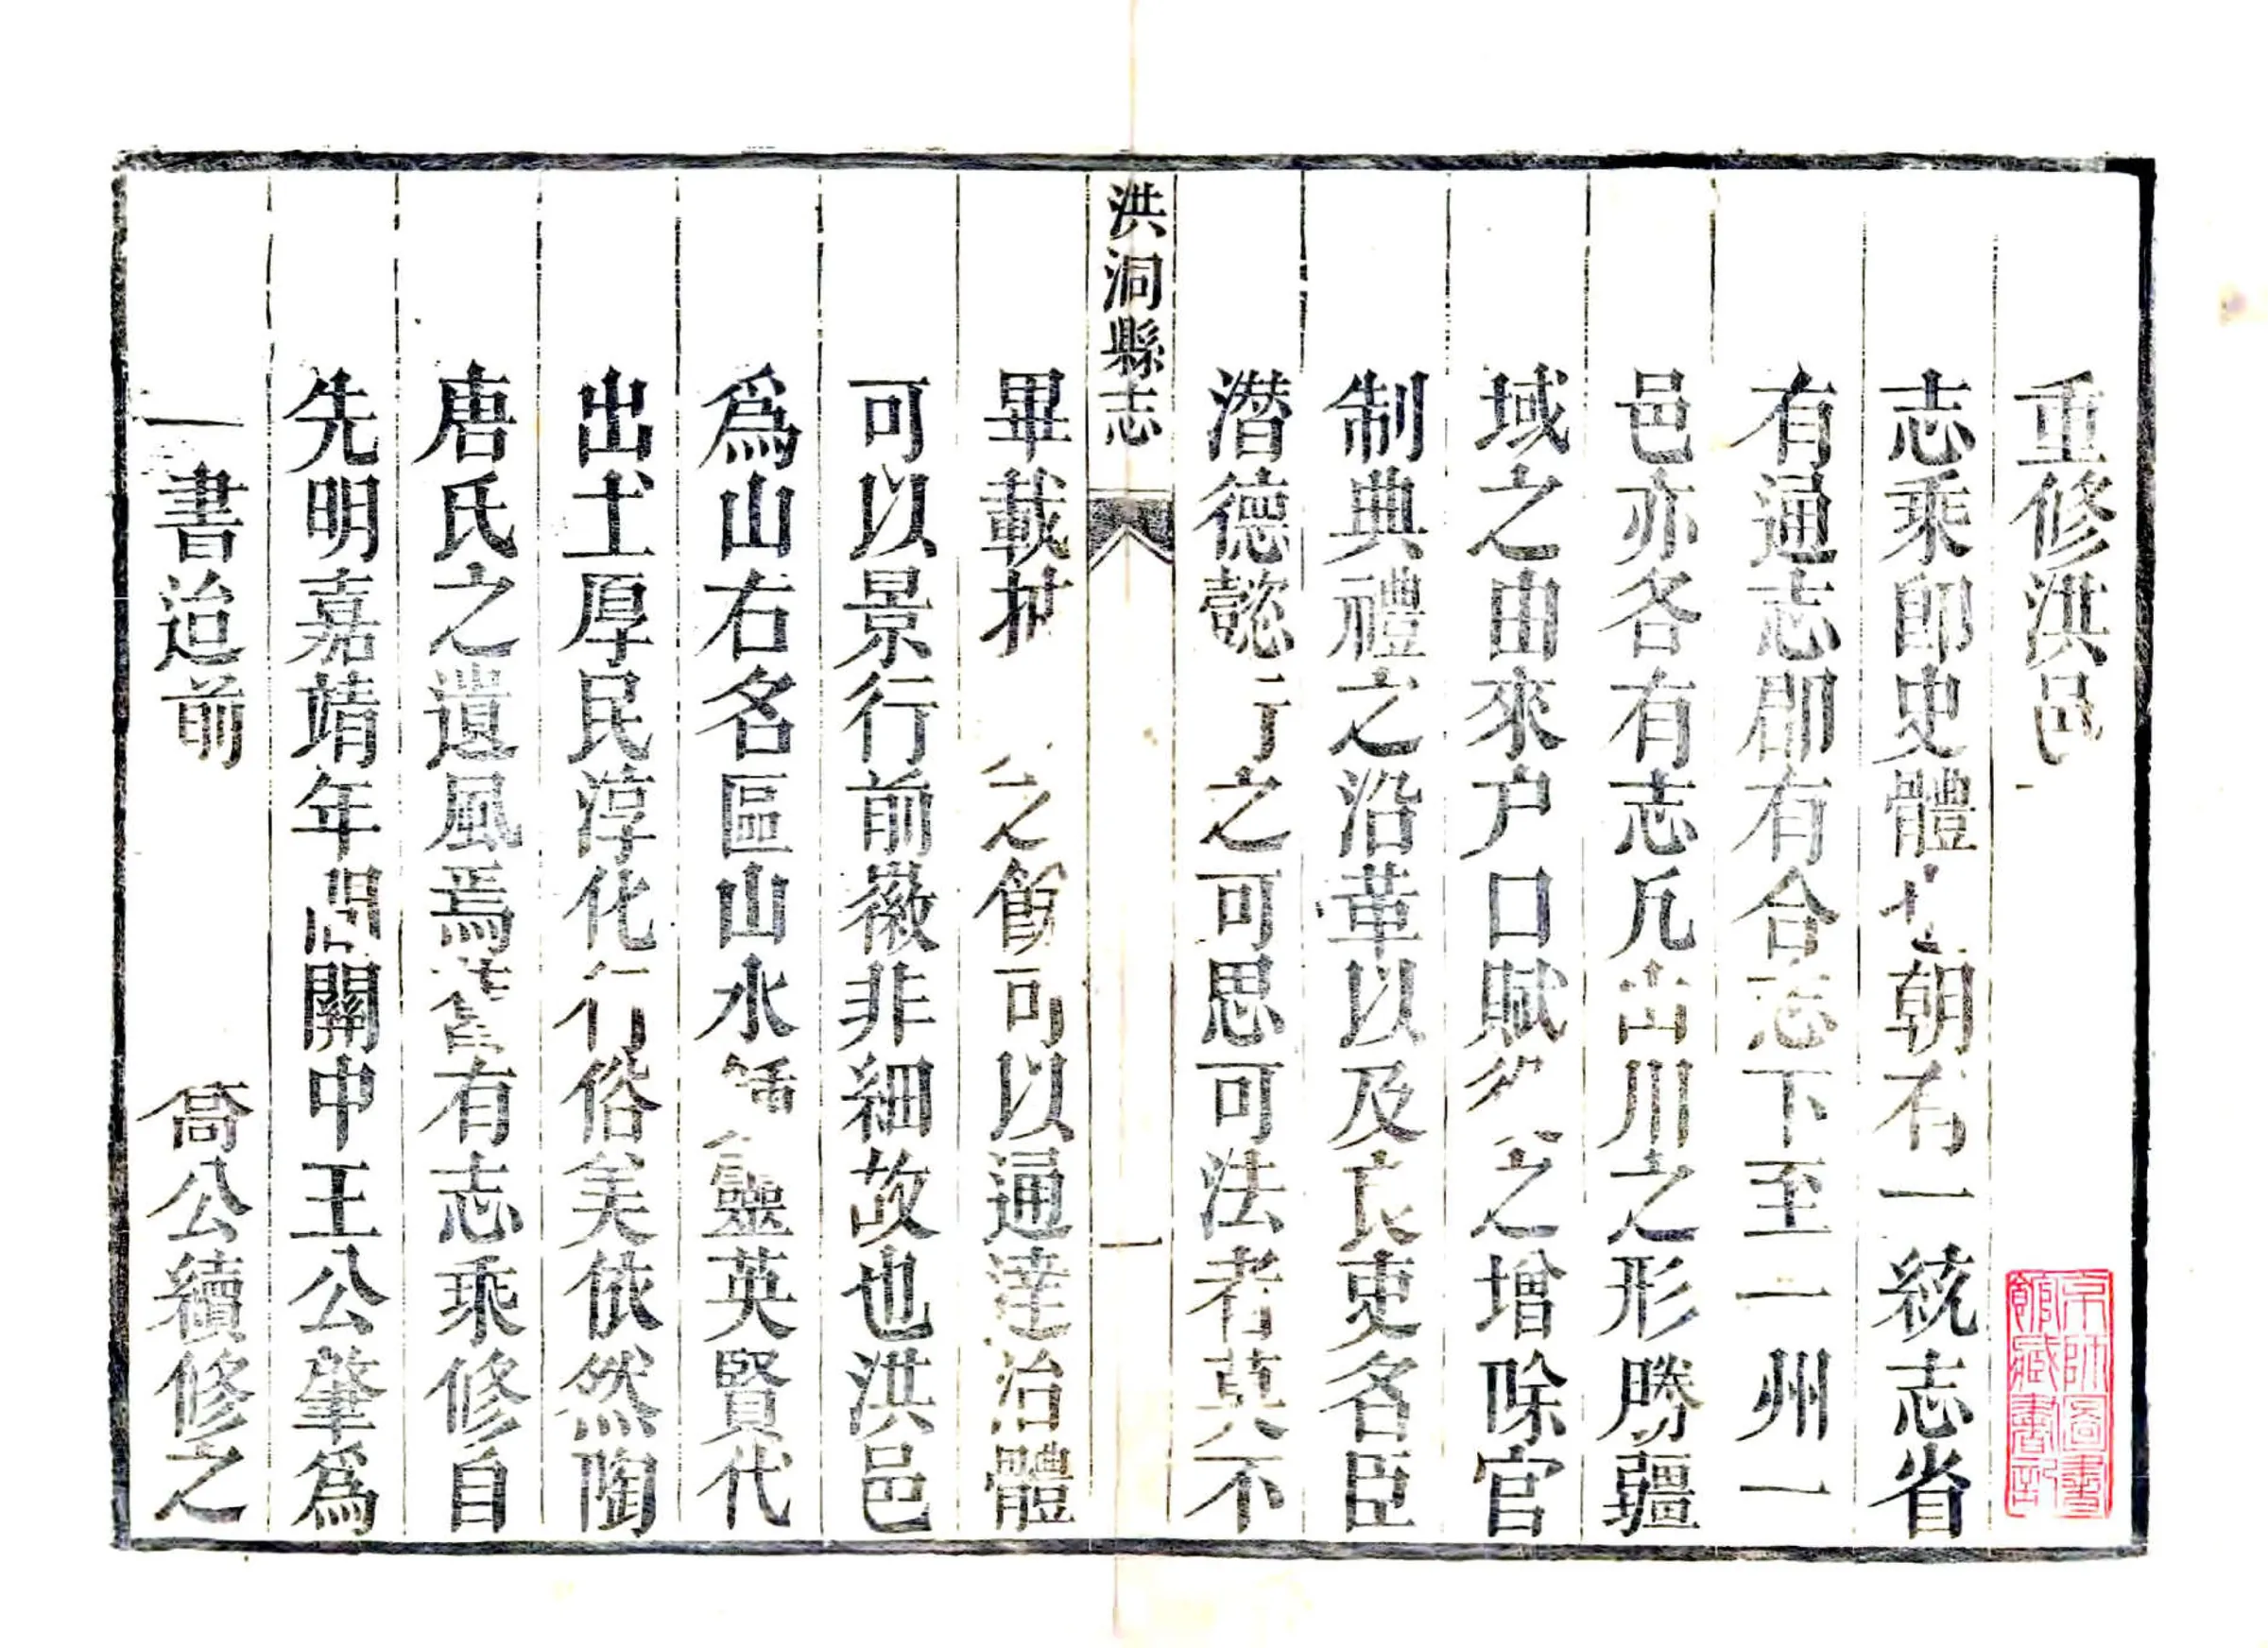 重修洪邑
志乘卽史體也朝有一統志省
有通志郡有合志下至一州一
邑亦各有志凡山川之形勝疆
域之由來户口賦役之增除官
制典禮之沿革以及良吏名臣
潛德懿行之可思可法者莫不
洪洞縣志
一
畢載披之餘可以通達治體
可以景行前徽非細故也洪邑
爲山右名區山水靈英賢代
出土厚民淳化行俗美依然陶
唐氏之遺風焉舊有志乘修自
先明嘉靖年間關中王公肇爲
一書迨前喬公續修之
京師圖書館藏書記